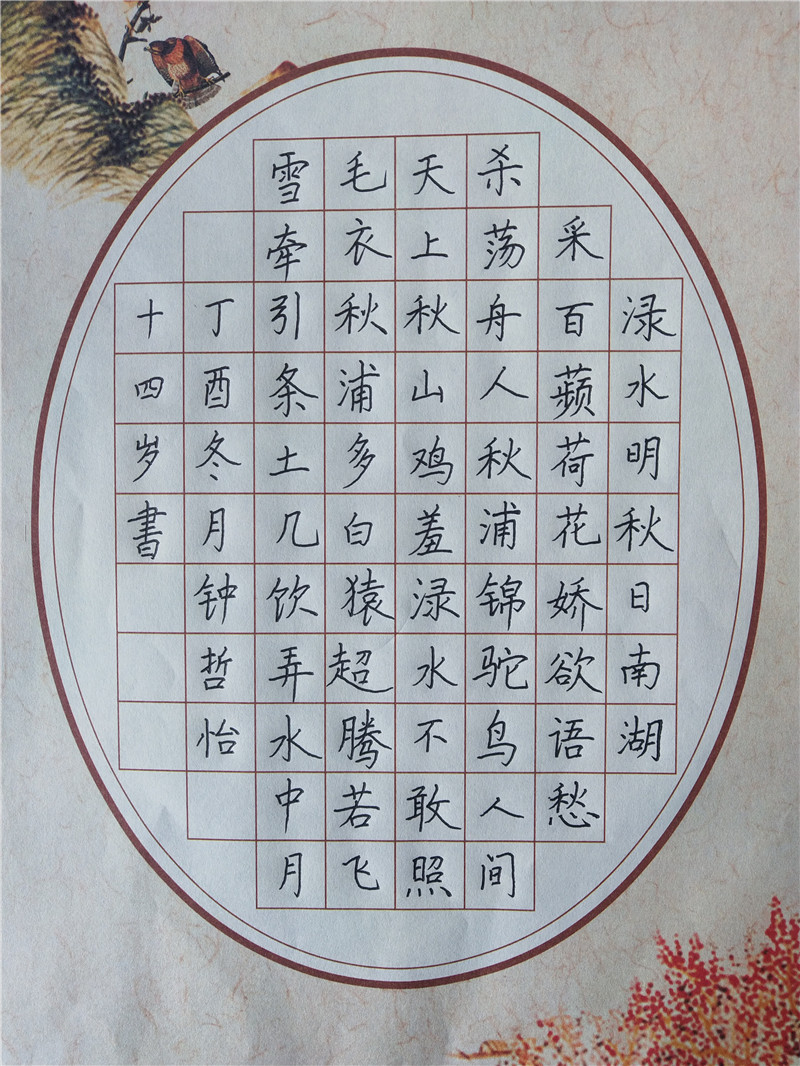 渌水明秋日南湖
采百𬞟荷花娇欲语愁
杀荡舟人秋浦锦驼鸟人间
天上秋山鸡羞渌水不敢照
毛衣秋浦多白猿超腾若飞
雪牵引条土几饮弄水中月
丁酉冬月钟哲怡
十四岁書